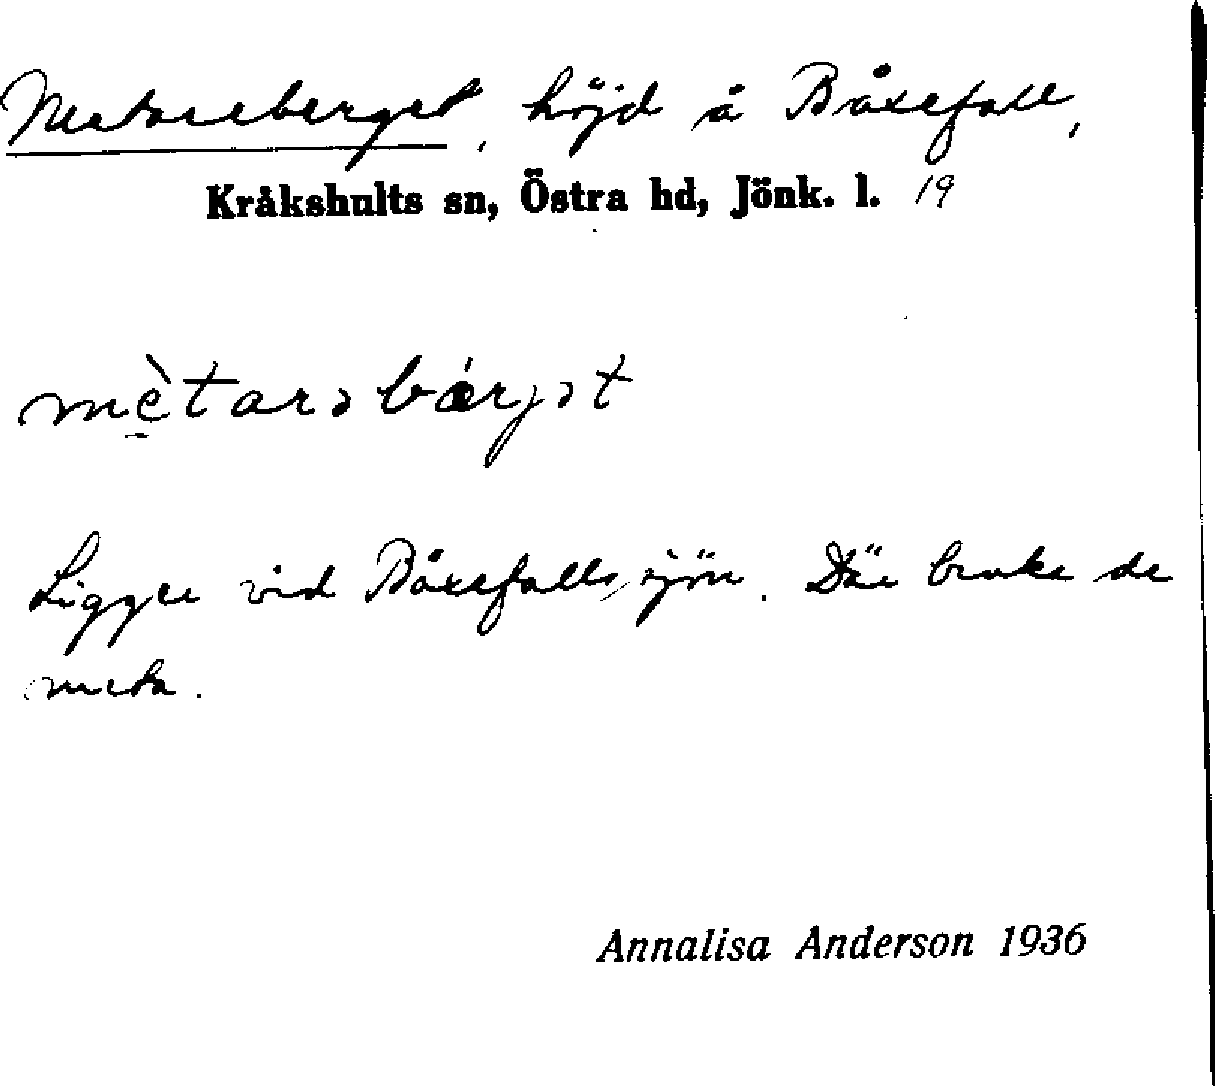 Metareberget, höjd å Båxefall,
Kråkshults sn, Östra hd, Jönk. l. 19
mètarəbǽrjət
Ligger vid Båxefallssjön. Där bruka de
meta.
Annalisa Anderson 1936